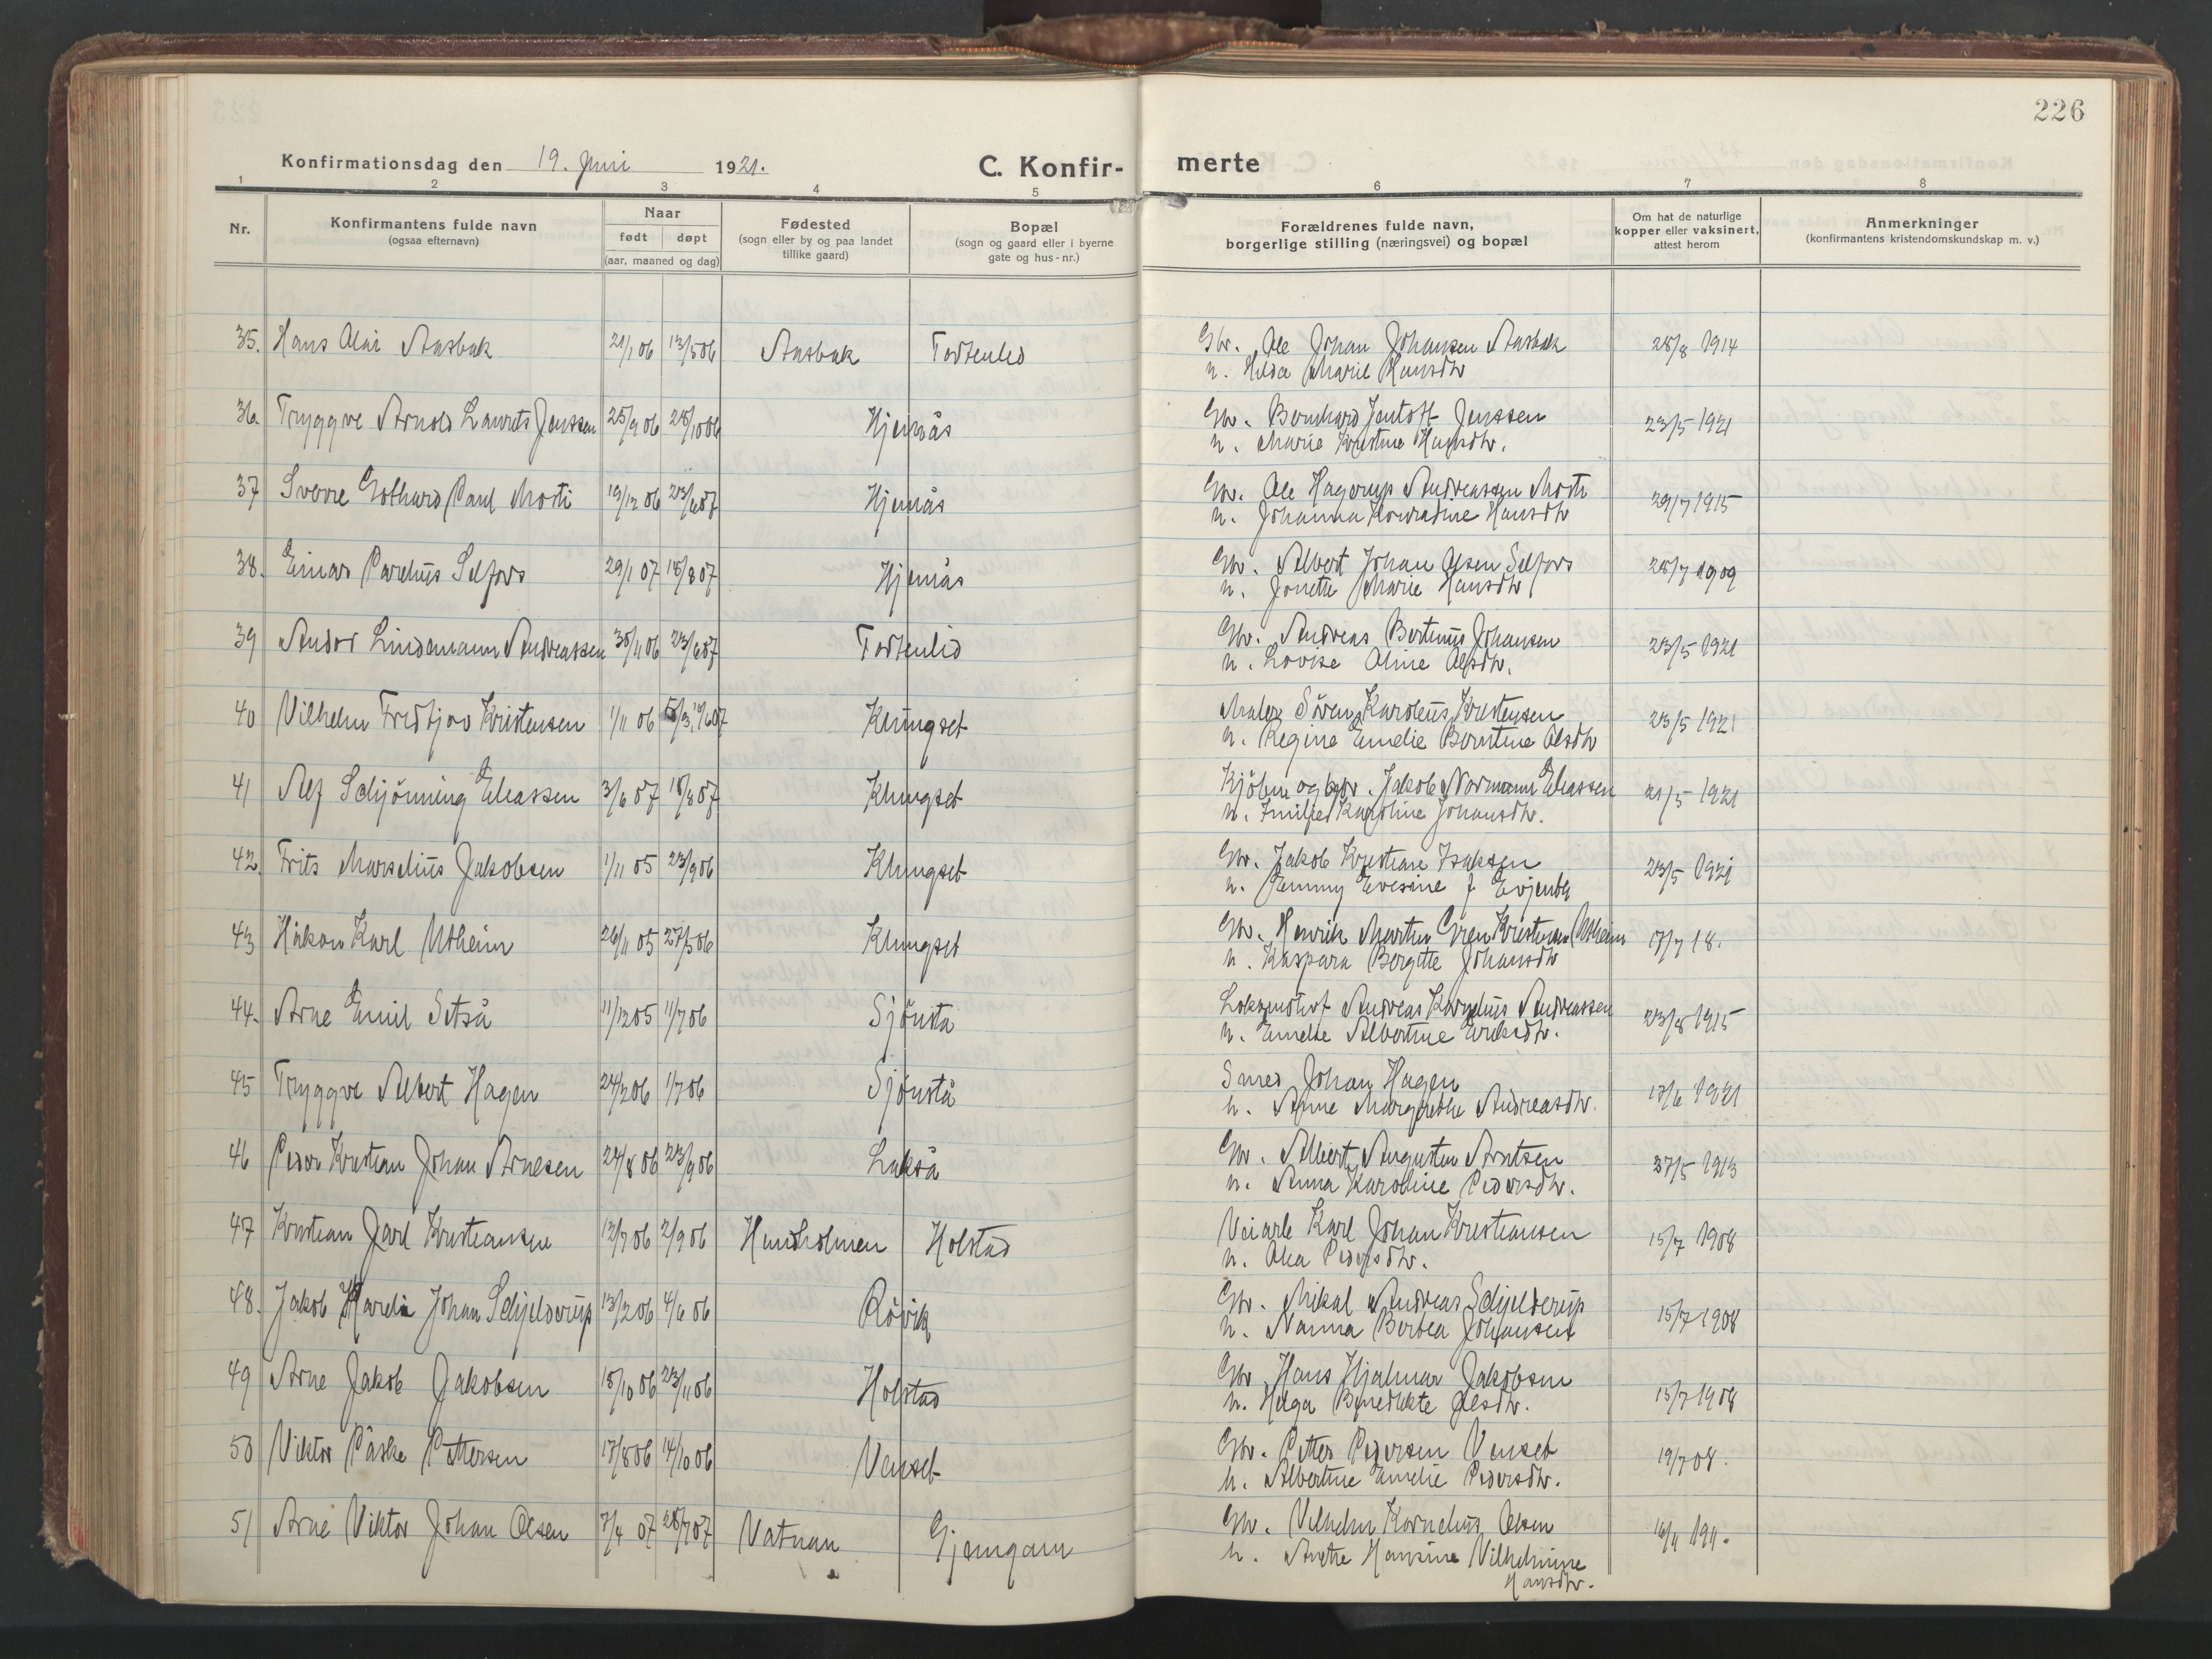 226
Konfirmationsdag den 19. Juni 1921.
C. Konfirmerte
1 2 3 4 5 6 7 8
Nr.
Konfirmantens fulde navn
(ogsaa efternavn)
Naar
født døpt
(aar, maaned og dag)
Fødested
(sogn eller by og paa landet
tillike gaard)
Bopæl
(sogn og gaard eller i byerne
gate og hus-nr.)
Forældrenes fulde navn,
borgerlige stilling (næringsvei) og bopæl
Om hat de naturlige
kopper eller vaksinert,
attest herom
Anmerkninger
(konfirmantens kristendomskundskap m. v.)
35. Hans Alar Aasbak 21/1 06 13/5 06 Aasbak Tortenlid Gbr. Ole Johan Johansen Aasbak 28/8 1914
h. Hilda Marie Hansdtr
36. Tryggve Arnold Laurits Jenssen 25/9 06 28/10 06 Hjemås Gbr. Bernhard Jentoft Jenssen 23/5 1921
h. Marie Kristine Hansdtr.
37 Sverre Gothard Paul Morti 19/12 06 23/6 07 Hjemås Gbr. Ole Hagerup Andreassen Morti 29/7 1915
h. Johanna Konradine Hansdtr
38. Einar Parelius Selfors 29/1 07 18/8 07 Hjemås Gbr. Albert Johan Olsen Selfors 28/7 1909
h. Jonette Marie Hansdtr
39 Andor Lindemann Andreassen 30/11 06 23/6 07 Tortenlid Gbr. Andreas Bertinus Johansen 23/5 1921
h. Lovise Oline Olsdtr.
40 Vilhelm Fredtjov Kristensen 1/11 06 Klungset Maler Sören Karolius Kristensen 23/5 1921
h. Regine Emelie Berntine Olsdtr
41 Alf Schjönning Eliassen 3/6 07 18/8 07 Klungset Kjöbm og gbr. Jakob Normann Eliassen 21/5 1921
h. Emilie Karoline Johansdtr.
42. Frits Marselius Jakobsen 1/11 05 23/9 06 Klungset Gbr. Jakob Kristian Isaksen 23/5 1921
h. Jemmy Evesine f Evjenth
43 Håkon Karl Utheim 26/11 05 27/5 06 Klungset Gbr. Henrik Martin Kristensen Utheim 17/7 18.
h. Kaspara Bergitte Johansdtr
44. Arne Emil Setså 11/12 05 11/7 06 Sjönstå Lokomotivf Andreas Kornelius Andreassen 23/8 1915
h. Emelie Albertine Eriksdtr.
45 Tryggve Albert Hagen 24/2 06 1/7 06 Sjönstå Smed Johan Hagen 17/6 1921
h. Anne Margrethe Andreasdtr.
46 Peder Kristian Johan Arntsen 24/8 06 23/9 06 Lakså Gbr. Albert Augustin Arntsen 27/5 1913
h. Anna Karoline Pedersdtr.
47 Kristian Jarl Kristiansen 12/7 06 2/9 06 Hundholmen Holstad Veiarb Karl Johan Kristiansen 15/7 1908
h. Olea Pedersdtr.
48. Jakob Hardi Johan Schjelderup 13/2 06 4/6 06 Rövik Gbr. Mikal Andreas Schjelderup 15/7 1908
h. Nanna Berbea Johansen
49 Arne Jakob Jakobsen 15/10 06 23/11 06 Holstad Gbr. Hans Hjalmar Jakobsen 15/7 1908
h. Helga Benedikte Olsdtr.
50 Viktor Påske Pettersen 17/8 06 14/10 06 Venset Gbr. Petter Pedersen Venset 19/7 08.
h. Albertine Emelie Pedersdtr.
51 Arne Viktor Johan Olsen 7/4 07 28/7 07 Vatnan Gjemgam Gbr. Vilhelm Kornelius Olsen 16/11 1911.
h. Anethe Hansine Vilhelmine
Hansdtr.